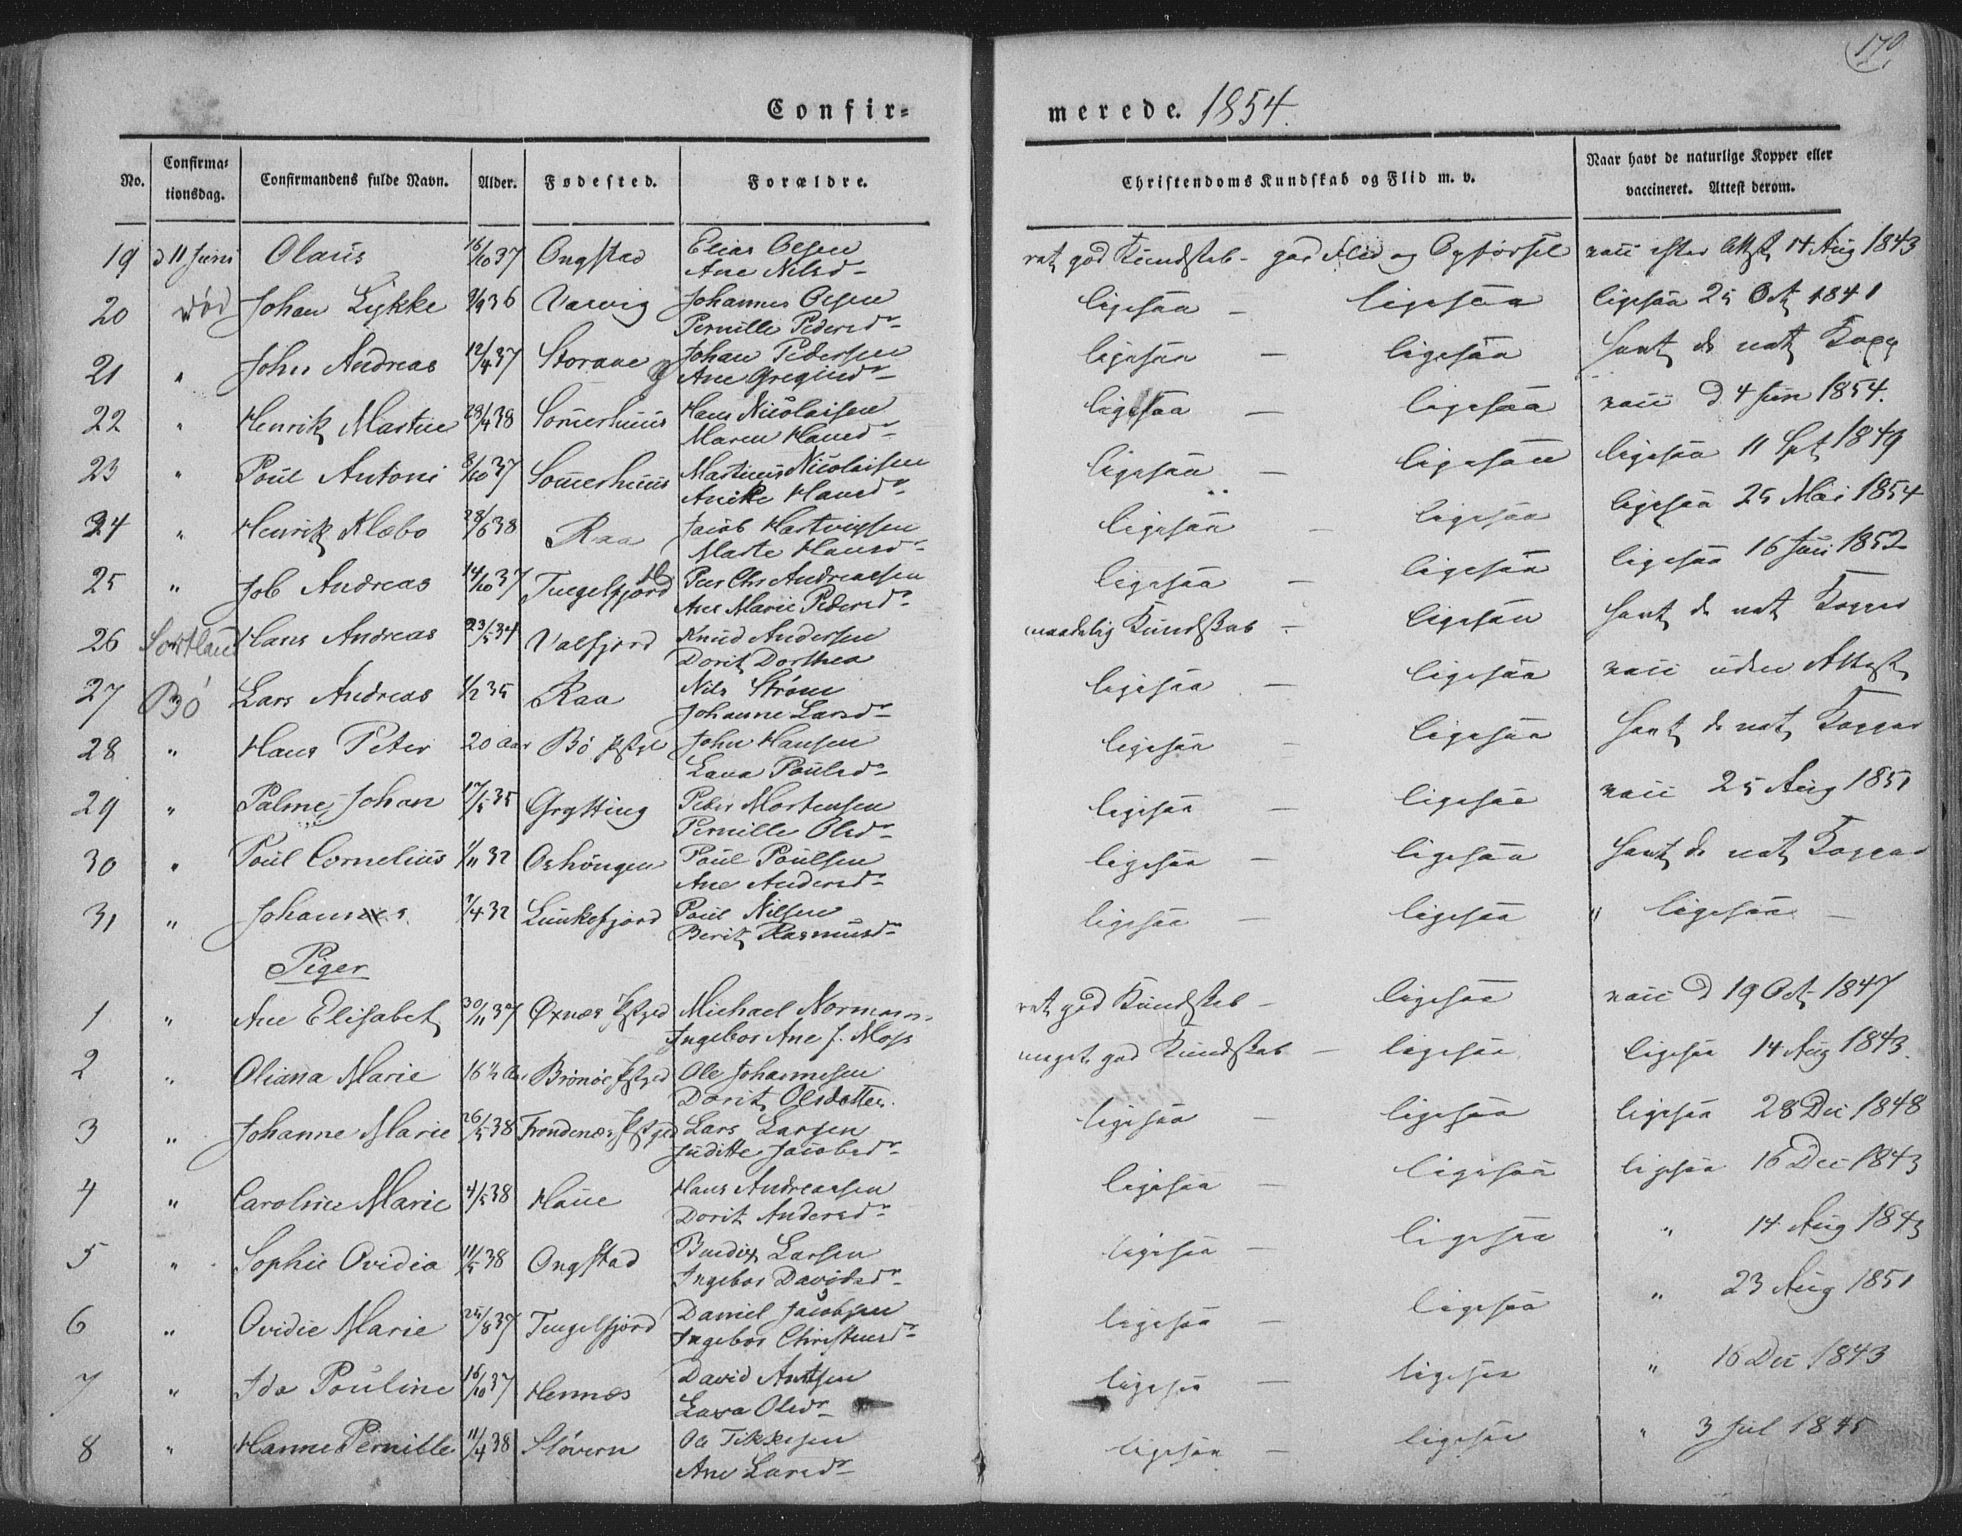 170
Confir=
merede. 1854.
No. Confirma= tionsdag. Confirmandens fulde Navn. Alder. Fødested. Forældre. Christendoms Kundskab og Flid m. v. Naar havt de naturlige Kopper eller vaccineret. Attest derom.
19 d 11 Juni Olaus 16/10 37 Ongstad Elias Olsen ret god Kundskab - god Flid og Opførsel vacc efter Attest 14 Aug 1843
Ane Nilsd-
20 Johan Lykke 9/9 36 Varvig Johannes Olsen ligesaa - ligesaa ligesaa 25 Oct 1841
Pernille Pedersd-
21 " John Andreas 12/4 37 Storaae Johan Pedersen ligesaa - ligesaa havt d nat Kopp
Ane
22 " Henrik Martin 29/4 38 Somerhuus Hans Nicolaisen ligesaa - ligesaa vacc d 4 Jun 1854.
Maren Hansd-
23 " Poul Antoni 8/10 37 Somerhuus Martinus Nicolaisen ligesaa - ligesaa ligesaa 11 Spt 1849
Anike Hansd-
24 " Henrik Klæbo 28/5 38 Raa Jacob Hartvigsen ligesaa - ligesaa ligesaa 25 Mai 1854
Marte Hansd-
25 " Job Andreas 14/10 37 Tingelfjord Peer Chr Andreassen ligesaa - ligesaa ligesaa 16 Juli 1852
Ane Marie Pedersd-
26 Sortland Hans Andreas 23/5 34 Valfjord Knud Andersen maadelig Kundskab - ligesaa havt d nat Kopper
Dorit Dorthea
27 Bö Lars Andreas 1/2 35 Raa Nils Strøm ligesaa - ligesaa vacc uden Attest
Johanne Larsd-
28 " Hans Peter 20 Aar Bö Pstgl John Hansen ligesaa - ligesaa havt d nat Kopper
Lava Poulsd-
29 " Palme Johan 17/5 35 Grytting Peter Mortensen ligesaa - ligesaa vacc 25 Aug 1851
Pernille Olsd-
30 " Poul Cornelius 1/11 32 Oshöngen Poul Poulsen ligesaa - ligesaa havt d nat Kopper
Ane Andersd-
31 " Johannes 7/4 32 Lunkefjord Poul Nilsen ligesaa - ligesaa " ligesaa -
Berit Rasmusd-
Piger
1 " Ane Elisabet 30/11 37 Øxnæs Pstgjed Michael Normann ret god Kundskab - ligesaa vacc d 19 Oct 1847
Ingebor Ane J. Moss
2 " Oliana Marie 16 1/2 Aar Brønøe Pstgjed Ole Johannesen meget god Kundskab - ligesaa ligesaa 14 Aug 1843.
Dorit Olsdatter.
3 " Johanne Marie 26/5 38 Trondenæs Pstgjed Lars Larsen ligesaa - ligesaa ligesaa 28 Dec 1848
Juditte Jacobsd-
4 " Caroline Marie 4/5 38 Haue Hans Andreasen ligesaa - ligesaa ligesaa 16 Dec 1843
Dorit Andersd-
5 " Sophie Ovidia 11/5 38 Ongstad Bendix Larsen ligesaa - ligesaa " 14 Aug 1843
Ingebor Davidsd-
6 " Ovidie Marie 25/8 37 Tingelfjord Daniel Jacobsen ligesaa - ligesaa " 23 Aug 1851
Ingebor Christensd-
7 " Ida Pouline 16/10 37 Hennæs David Antsen ligesaa - ligesaa " 16 Dec 1843
Lava Olsd-
8 " Hanne Pernille 11/4 38 Støvern Ole Tikkesen ligesaa - ligesaa " 3 Jul 1845
Ane Larsd-